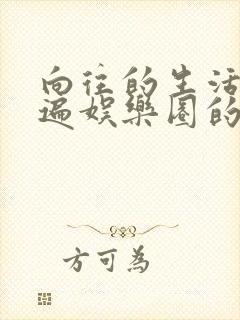 向往的生活
遍娱樂圈的
方可為